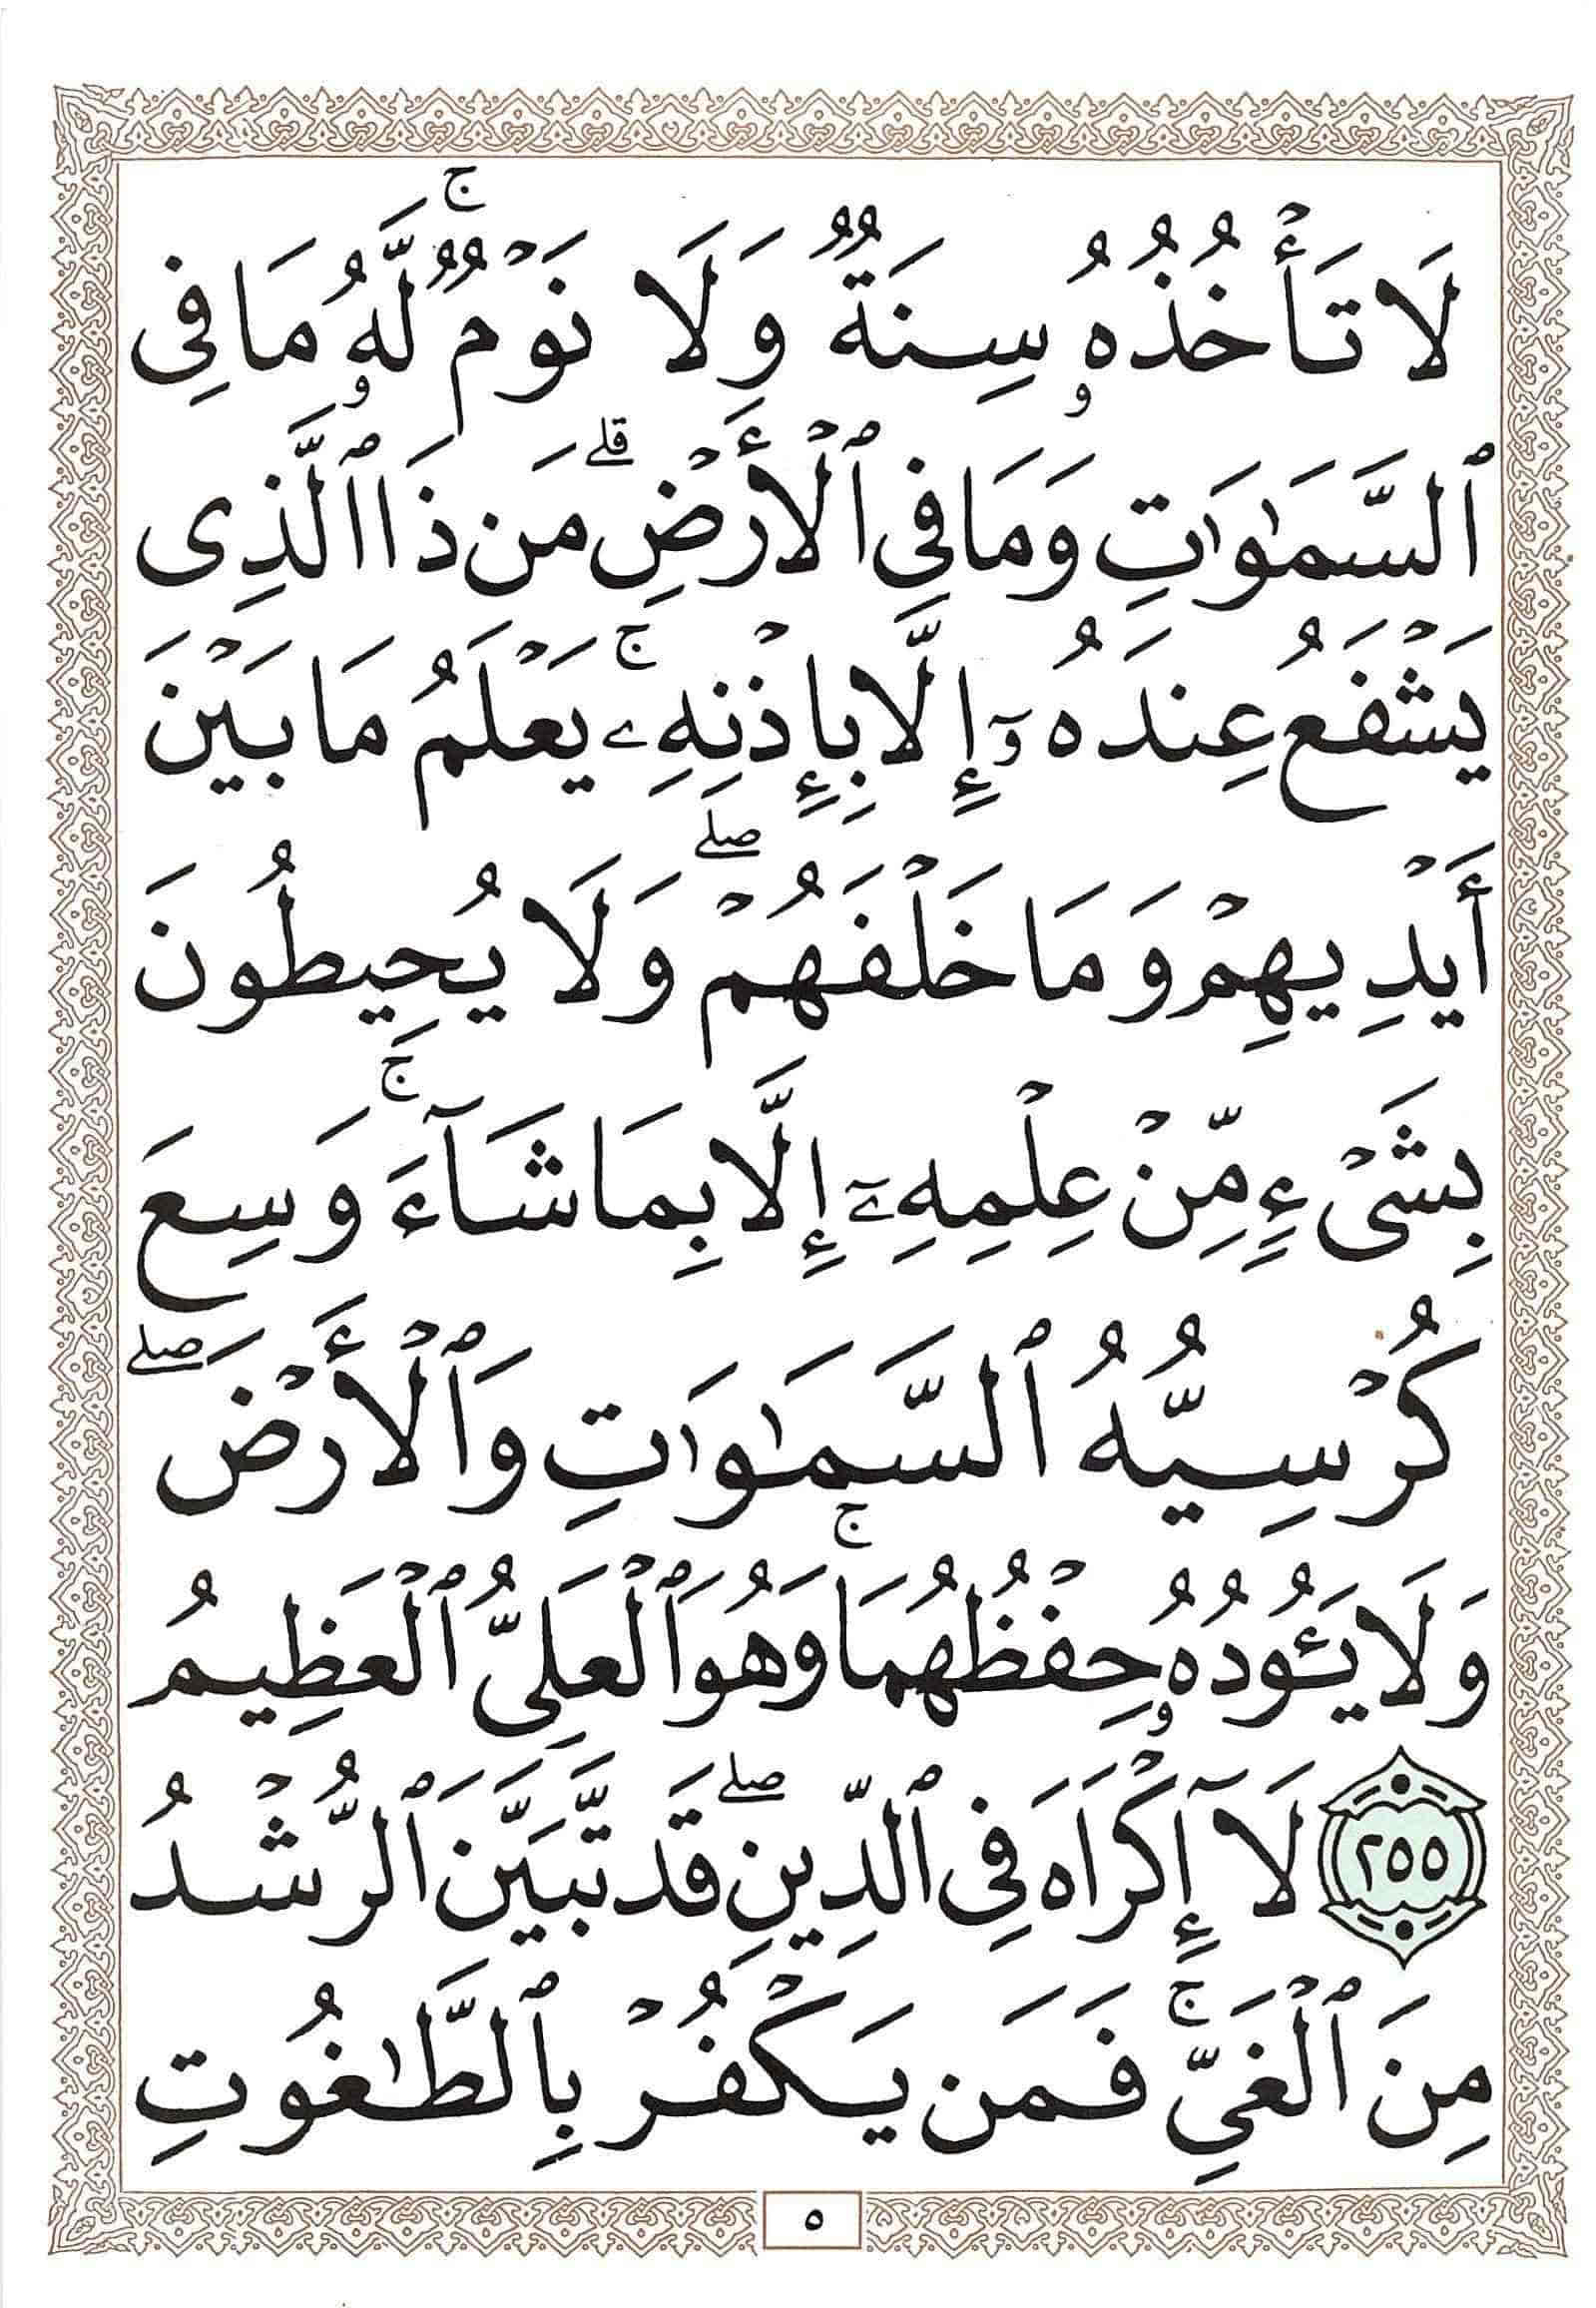 لَا تَأْخُذُهُۥ سِنَةٌ وَلَا نَوْمٌ ۚ لَّهُۥ مَا فِى
ٱلسَّمَٰوَٰتِ وَمَا فِى ٱلْأَرْضِ ۗ مَن ذَا الَّذِى
يَشْفَعُ عِندَهُۥٓ إِلَّا بِإِذْنِهِۦ ۚ يَعْلَمُ مَا بَيْنَ
أَيْدِيهِمْ وَمَا خَلْفَهُمْ ۖ وَلَا يُحِيطُونَ
بِشَىْءٍ مِّنْ عِلْمِهِۦٓ إِلَّا بِمَا شَآءَ ۚ وَسِعَ
كُرْسِيُّهُ ٱلسَّمَٰوَٰتِ وَٱلْأَرْضَ ۖ
وَلَا يَـُٔودُهُۥ حِفْظُهُمَا ۚ وَهُوَ ٱلْعَلِىُّ ٱلْعَظِيمُ
٢٥٥ لَآ إِكْرَاهَ فِى ٱلدِّينِ ۖ قَد تَّبَيَّنَ ٱلرُّشْدُ
مِنَ ٱلْغَىِّ ۚ فَمَن يَكْفُرْ بِٱلطَّٰغُوتِ
٥